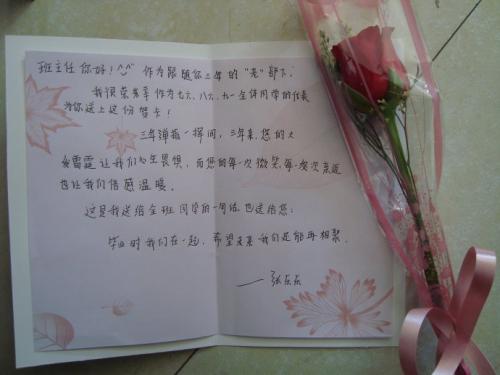 班主任你好！^_^ 作为跟随你三年的“老”部下，
我很荣幸作为七六、八六、九一全体同学的代表
为你送上这份贺卡！
三年弹指一挥间，三年来，您的大
发雷霆让我们心生畏惧，而您的每一次微笑，每一次
也让我们倍感温暖。
这是我送给全班同学的一句话，也送给您：
毕业时我们在一起，希望未来我们还能再相聚.
——张